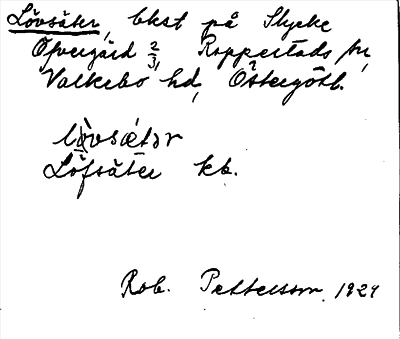 Lövsäter, bkst på Stycke
Öfvergård 2/3, Rappestads sn,
Valkebo hd, Östergötl.
lö̀vsætər
Löfsäter kb.
Rob. Pettersson 1929